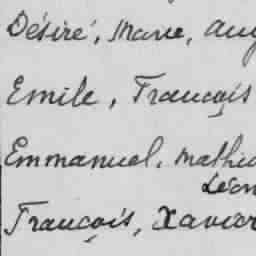 Désiré, Marie, Aug
Emile, François
Emmanuel, Mathie
Léon
François, Xavier